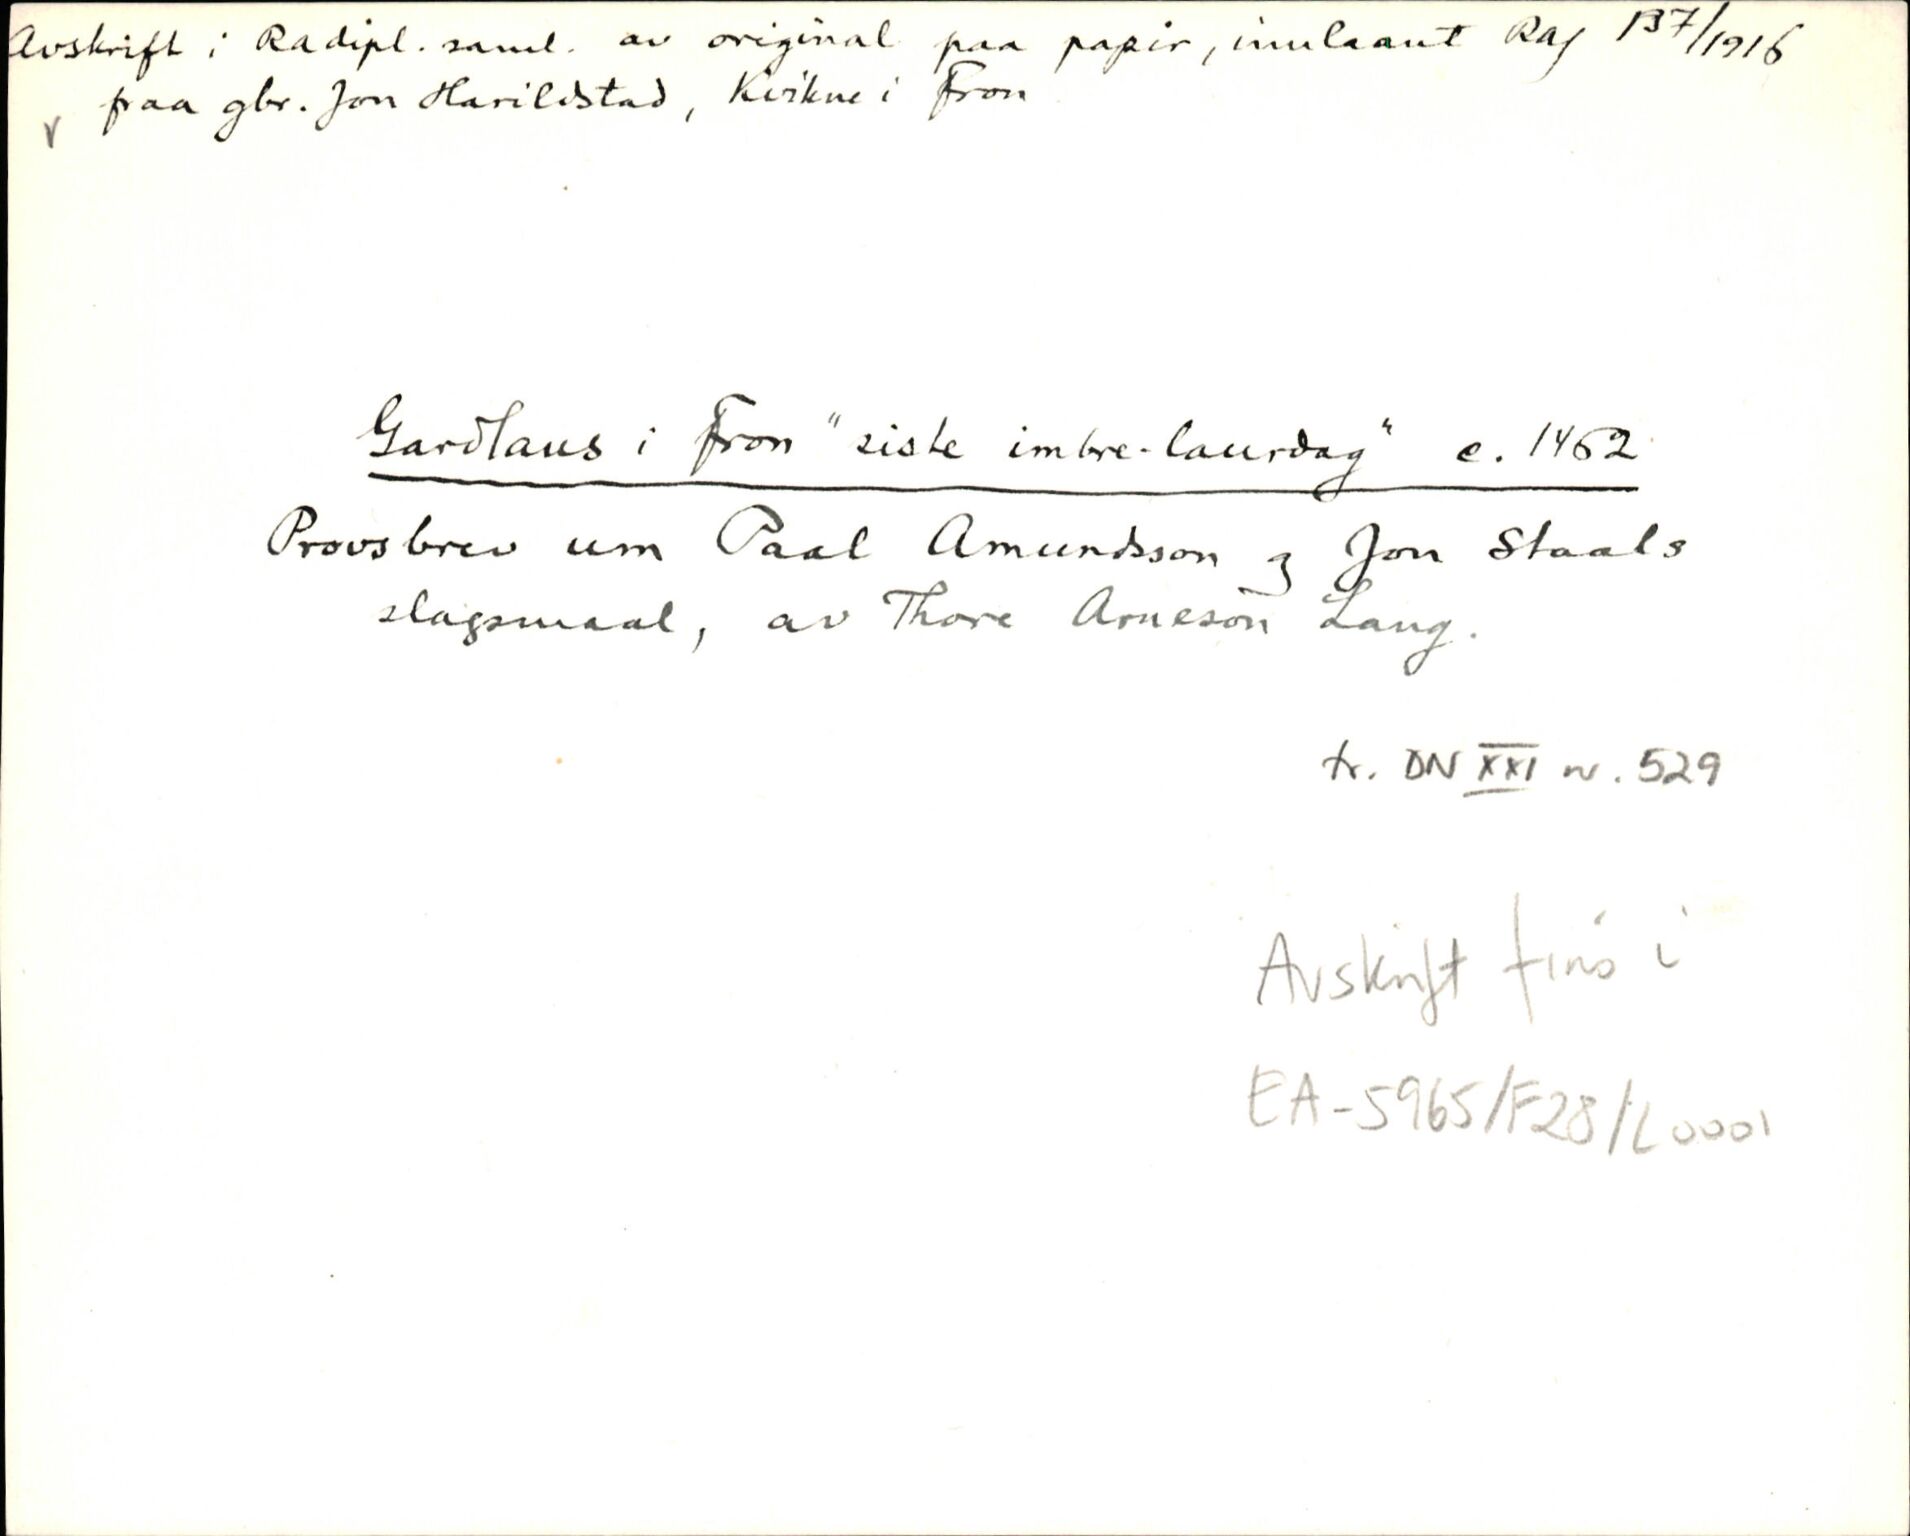 Avskrift i Radipl. saml. av original paa papir, innlaant Raj 137/1916
fraa gbr. Jon Harildstad, Kvikne i Fron
v
Gardlaus i Fron "siste imbre-laurdag" c. 1462
Provsbrev um Paal Amundsson og Jon Staals
slagsmaal, av Thore Arneson Lang.
tr. DN XXI nr. 529
Avskrift fins i
EA-5965/F28/L0001